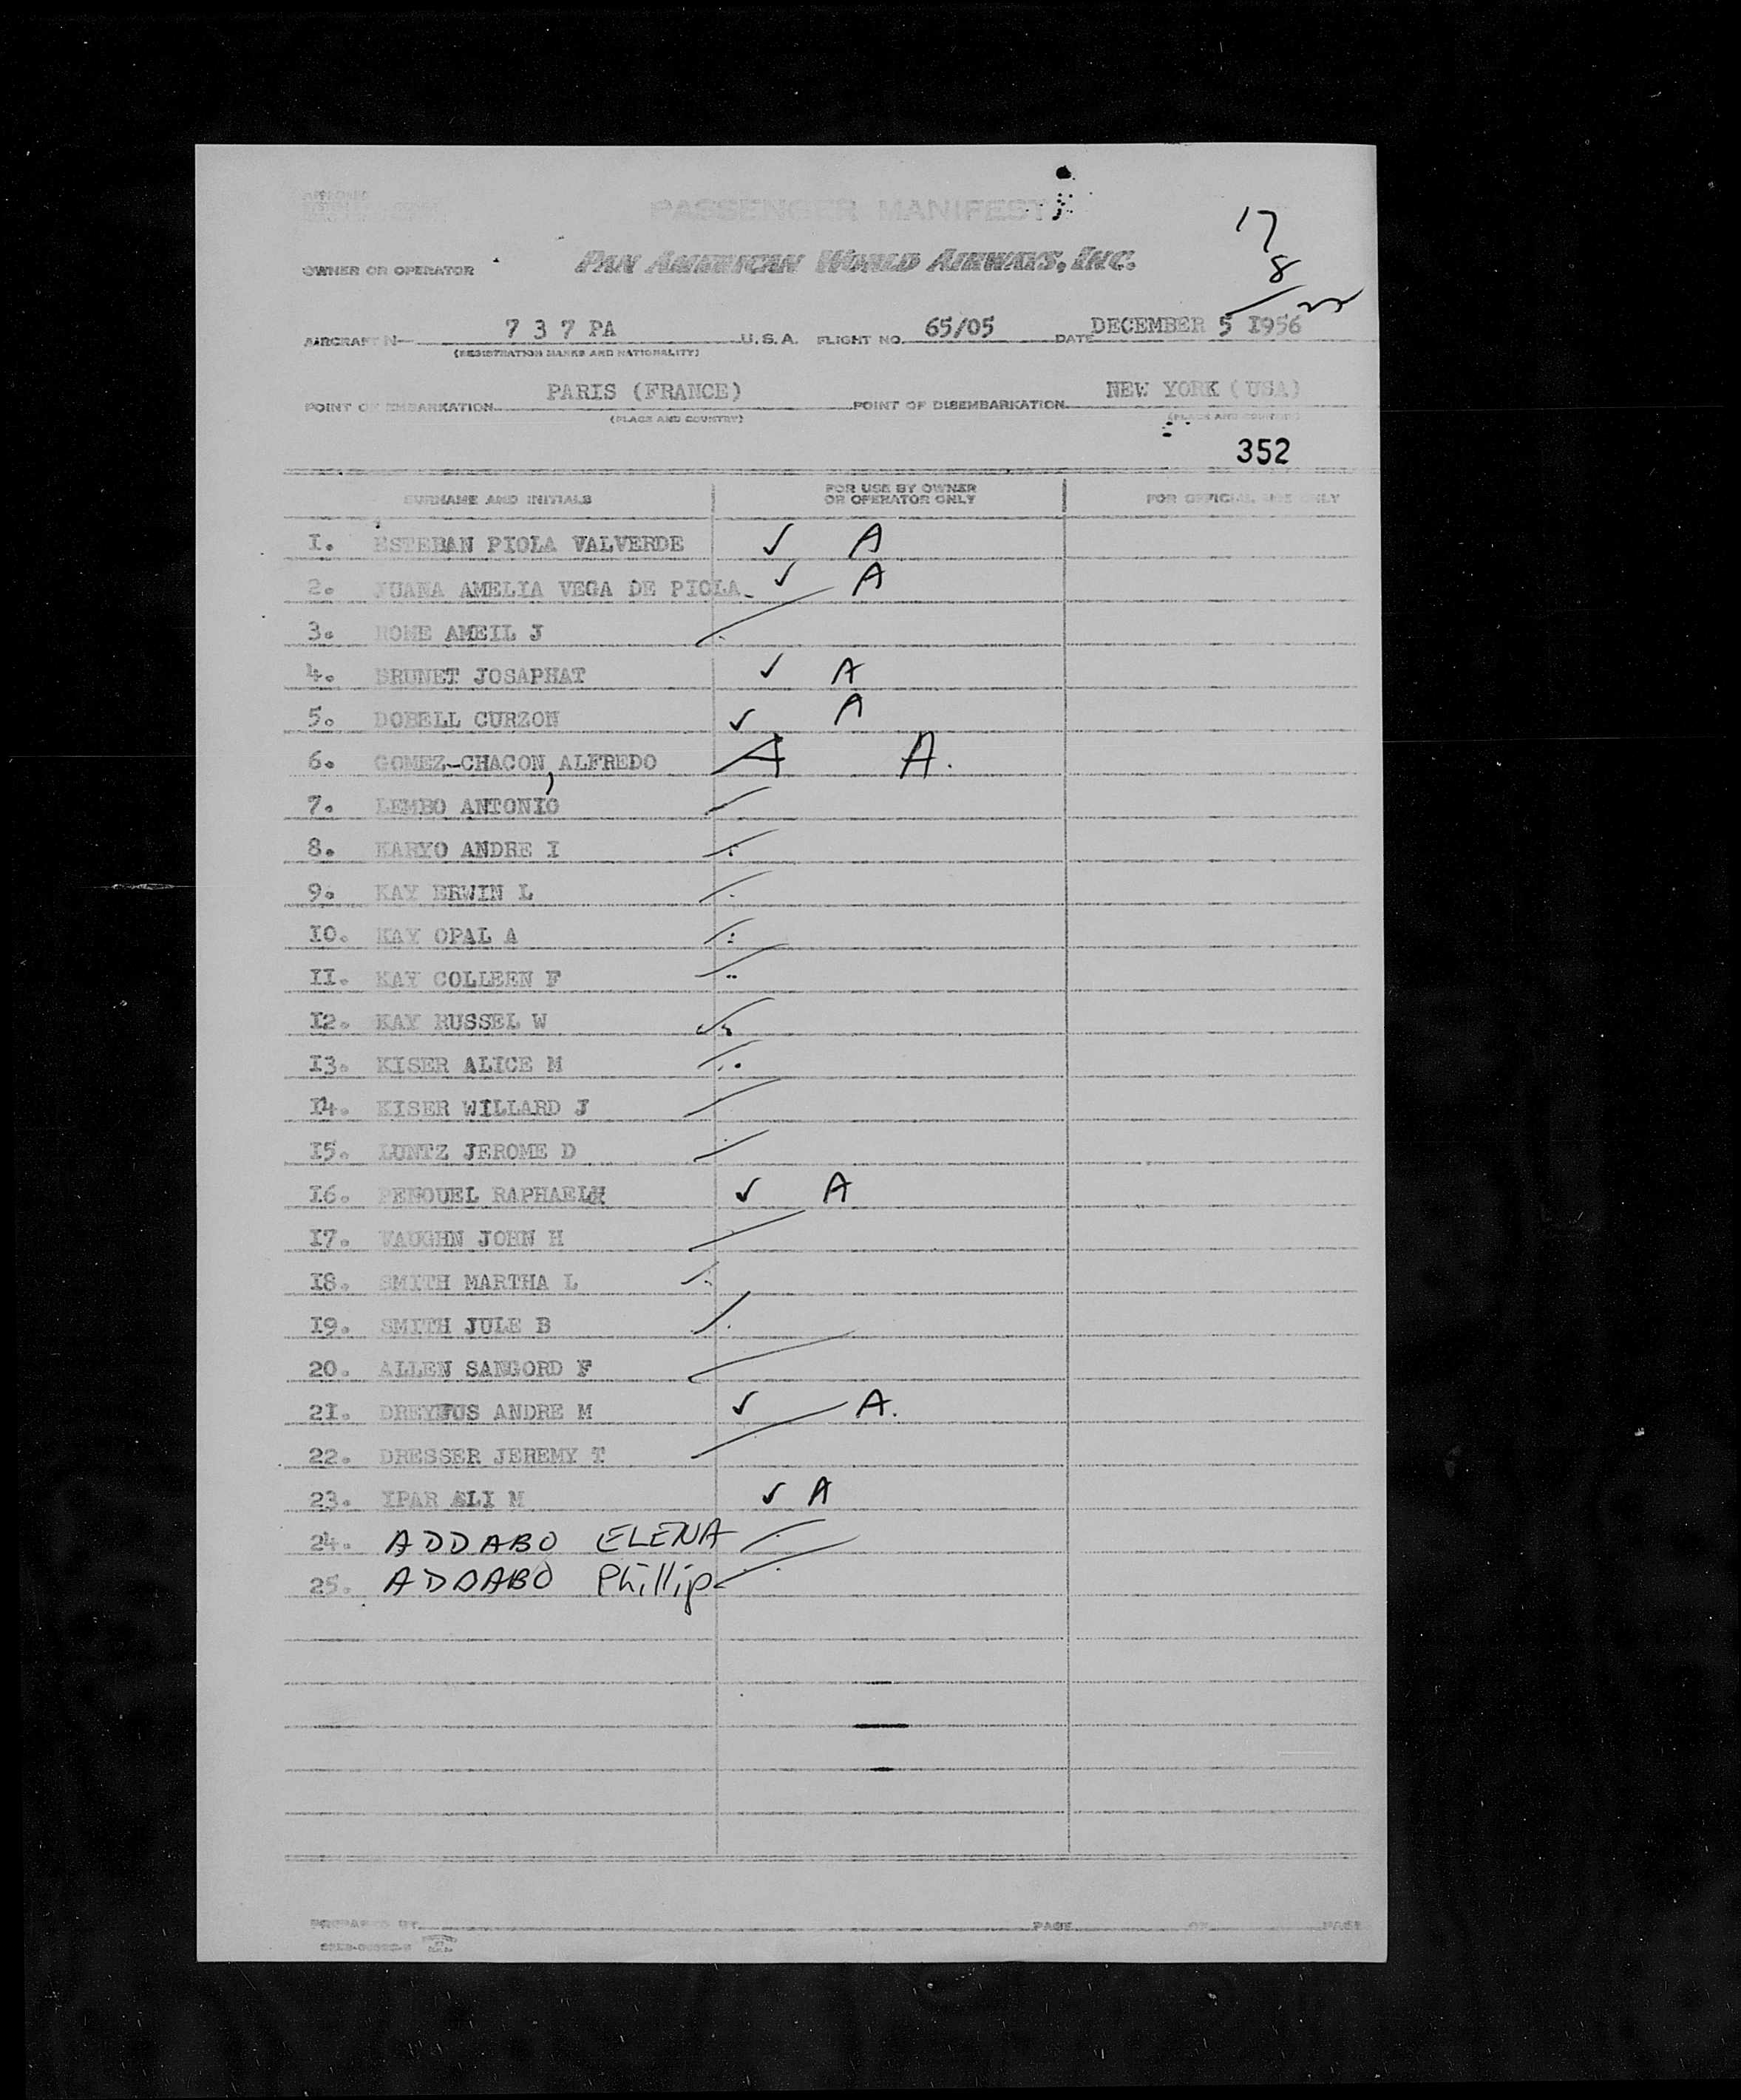 PASSENGER MANIFEST
17
8
OWNER OR OPERATOR PAN AMERICAN WORLD AIRWAYS, INC.
AIRCRAFT N- 7 3 7 PA U.S.A. FLIGHT NO. 65/05 DATE DECEMBER 5 1956
(REGISTRATION MARKS AND NATIONALITY)
POINT OF EMBARKATION PARIS (FRANCE) POINT OF DISEMBARKATION NEW YORK (USA)
(PLACE AND COUNTRY) (PLACE AND COUNTRY)
352
SURNAME AND INITIALS FOR USE BY OWNER OR OPERATOR ONLY FOR OFFICIAL USE ONLY
1. ESTEBAN PIOLA VALVERDE ✓ A
2. JUANA AMELIA VEGA DE PIOLA ✓ A
3. ROME AMEIL J
4. BRUNET JOSAPHAT ✓ A
5. DOBELL CURZON ✓ A
6. GOMEZ-CHACON, ALFREDO A A.
7. LEMBO ANTONIO
8. KARYO ANDRE I
9. KAY ERWIN L
10. KAY OPAL A
11. KAY COLLEEN F
12. KAY RUSSEL W
13. KISER ALICE M
14. KISER WILLARD J
15. LUNTZ JEROME D
16. PENOUEL RAPHAEL ✓ A
17. VAUGHN JOHN H
18. SMITH MARTHA L
19. SMITH JULE B
20. ALLEN SANGORD F
21. DREYFUS ANDRE M ✓ A.
22. DRESSER JEREMY T
23. IPAR ALI M ✓ A
24. ADDABO ELENA
25. ADDABO Phillip
PREPARED BY PAGE OF PAGE